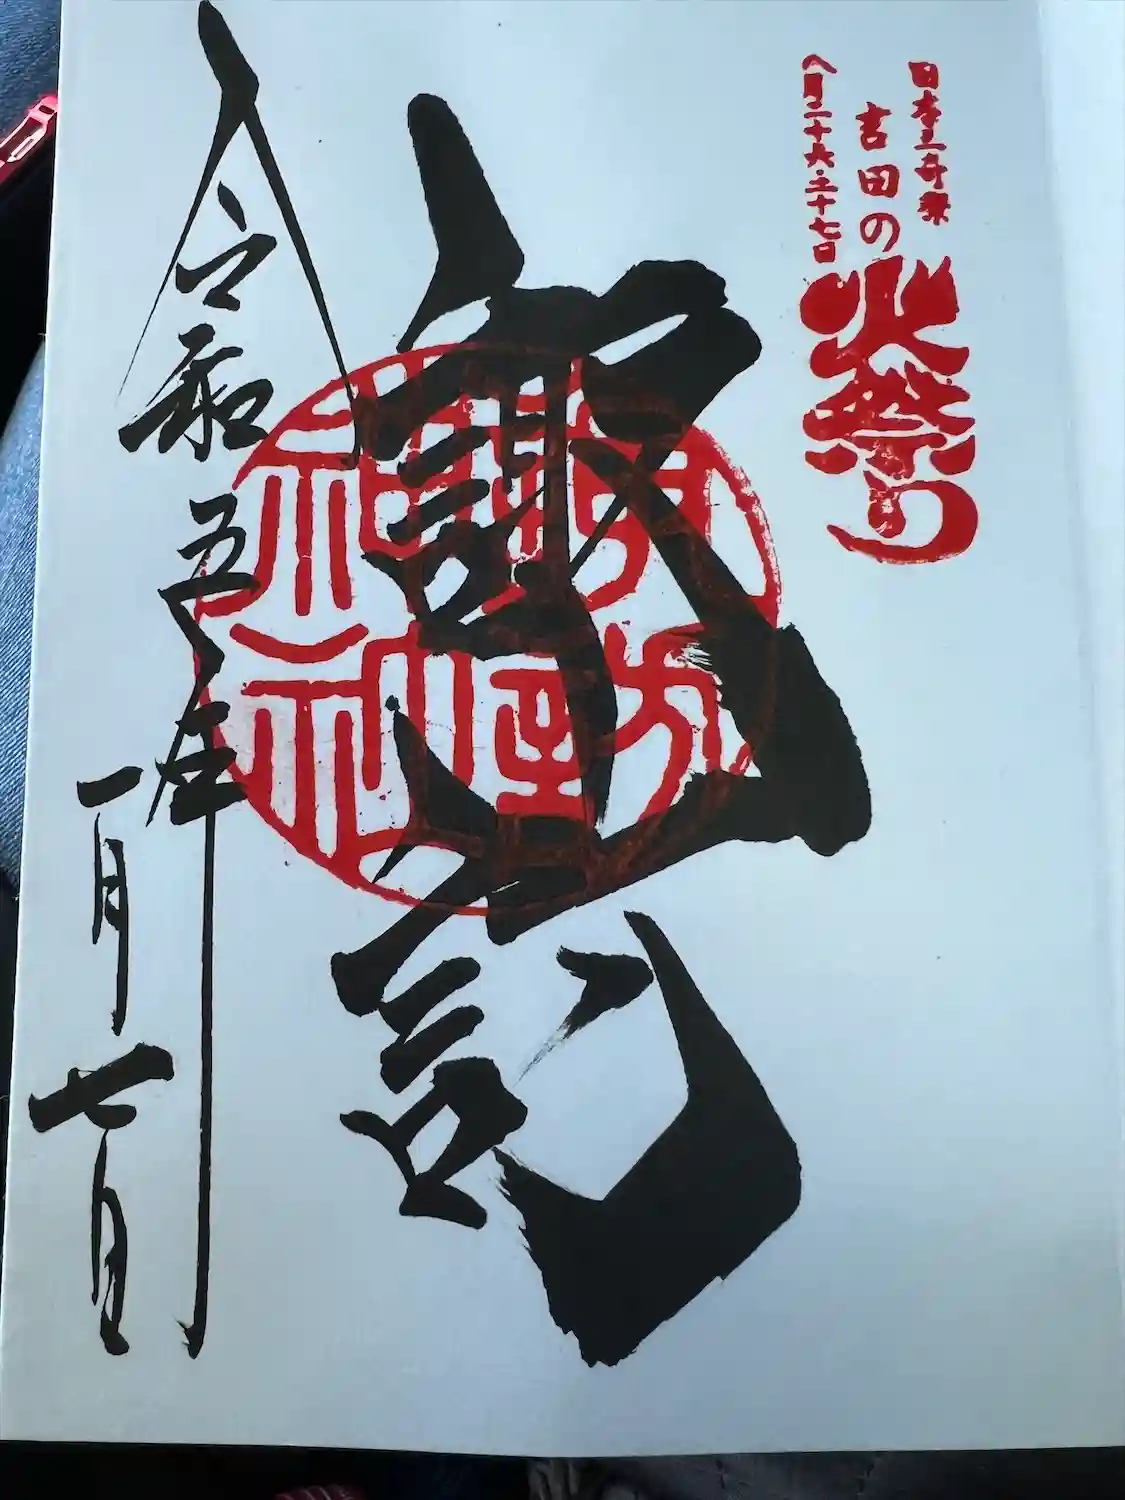 日本三奇祭
吉田の火祭り
八月二十六・二十七日
諏訪
諏訪神社
令和五年
一月七日